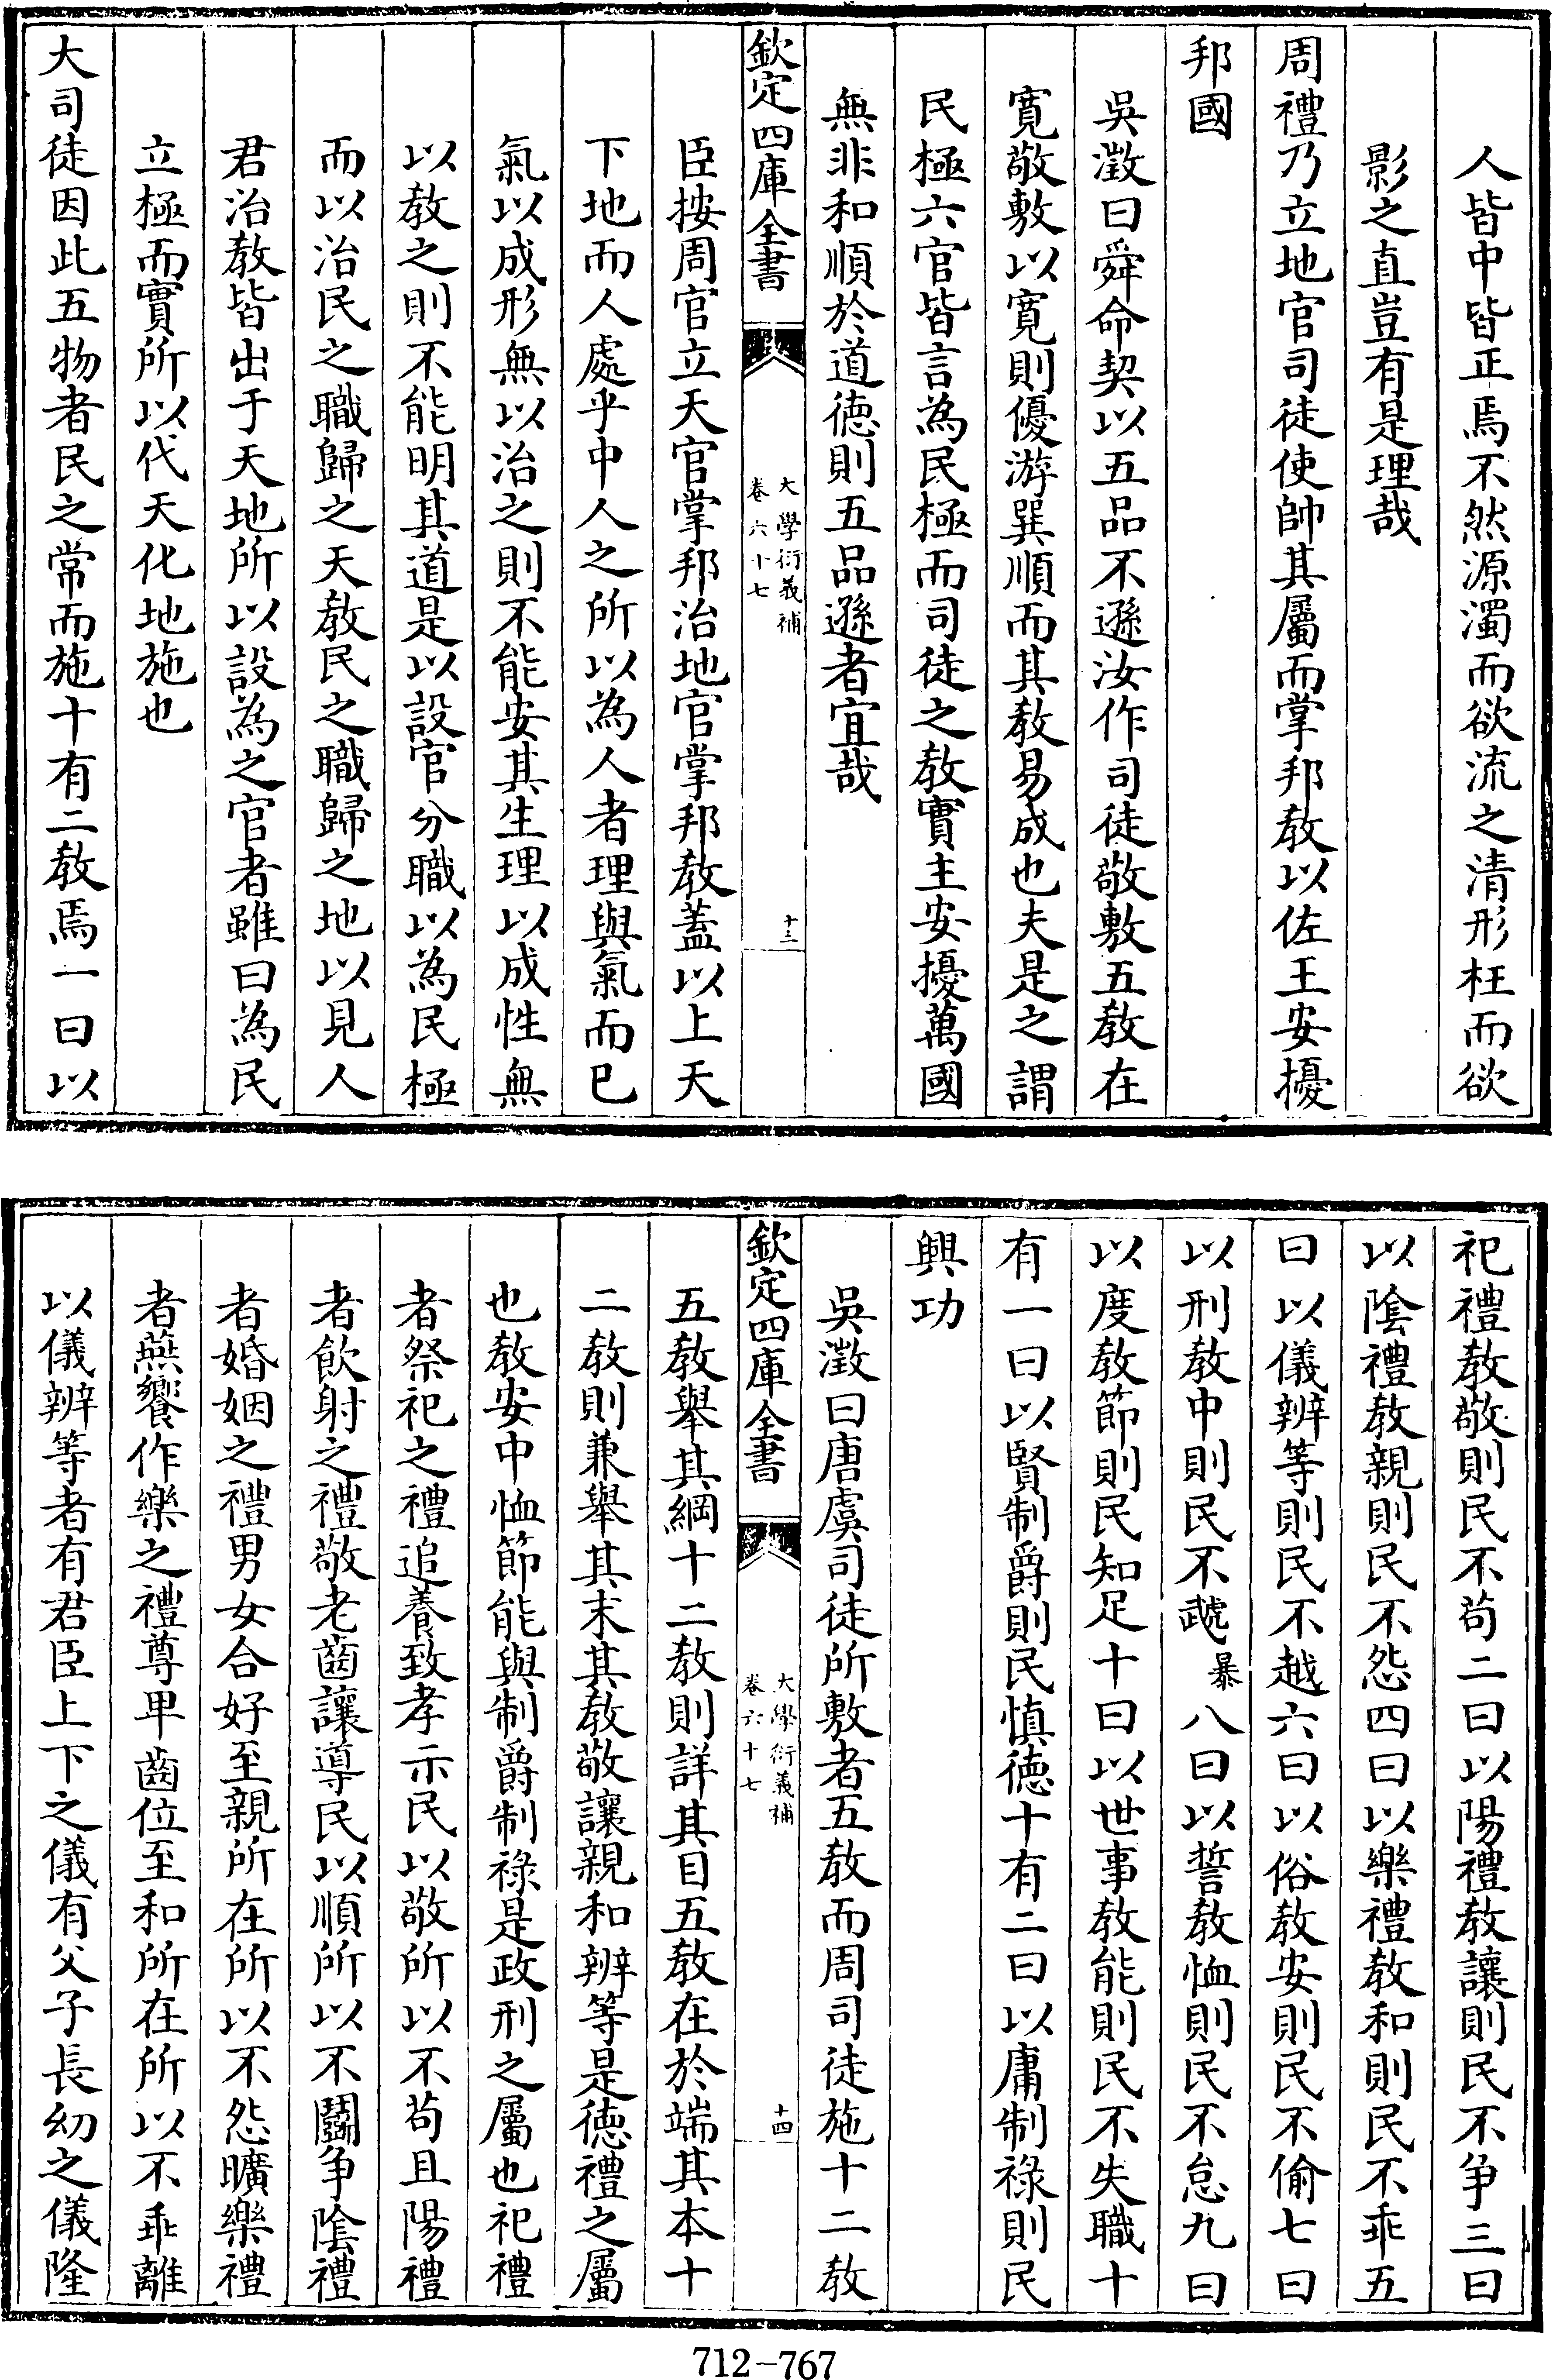 人皆中皆正焉不然源濁而欲流之清形枉而欲
影之直豈有是理哉
周禮乃立地官司徒使帥其屬而掌邦教以佐王安擾
邦國
吳澂曰舜命契以五品不遜汝作司徒敬敷五教在
寛敬敷以寛則優游巽順而其教易成也夫是之謂
民極六官皆言為民極而司徒之教實主安擾萬國
無非和順於道徳則五品遜者宜哉
欽定四庫全書
大學衍義補
卷六十七
十三
臣按周官立天官掌邦治地官掌邦教蓋以上天
下地而人處乎中人之所以為人者理與氣而已
氣以成形無以治之則不能安其生理以成性無
以教之則不能明其道是以設官分職以為民極
而以治民之職歸之天教民之職歸之地以見人
君治教皆出于天地所以設為之官者雖曰為民
立極而實所以代天化地施也
大司徒因此五物者民之常而施十有二教焉一曰以
祀禮教敬則民不苟二曰以陽禮教讓則民不争三曰
以陰禮教親則民不怨四曰以樂禮教和則民不乖五
曰以儀辨等則民不越六曰以俗教安則民不偷七曰
以刑教中則民不虣暴八曰以誓教恤則民不怠九曰
以度教節則民知足十曰以世事教能則民不失職十
有一曰以賢制爵則民慎徳十有二曰以庸制禄則民
興功
吳澂曰唐虞司徒所敷者五教而周司徒施十二教
欽定四庫全書
大學衍義補
卷六十七
十四
五教舉其綱十二教則詳其目五教在於端其本十
二教則兼舉其末其教敬讓親和辨等是徳禮之屬
也教安中恤節能與制爵制禄是政刑之屬也祀禮
者祭祀之禮追養致孝示民以敬所以不苟且陽禮
者飲射之禮敬老齒讓導民以順所以不鬬争陰禮
者婚姻之禮男女合好至親所在所以不怨曠樂禮
者燕饗作樂之禮尊卑齒位至和所在所以不乖離
以儀辨等者有君臣上下之儀有父子長幼之儀隆
712-767